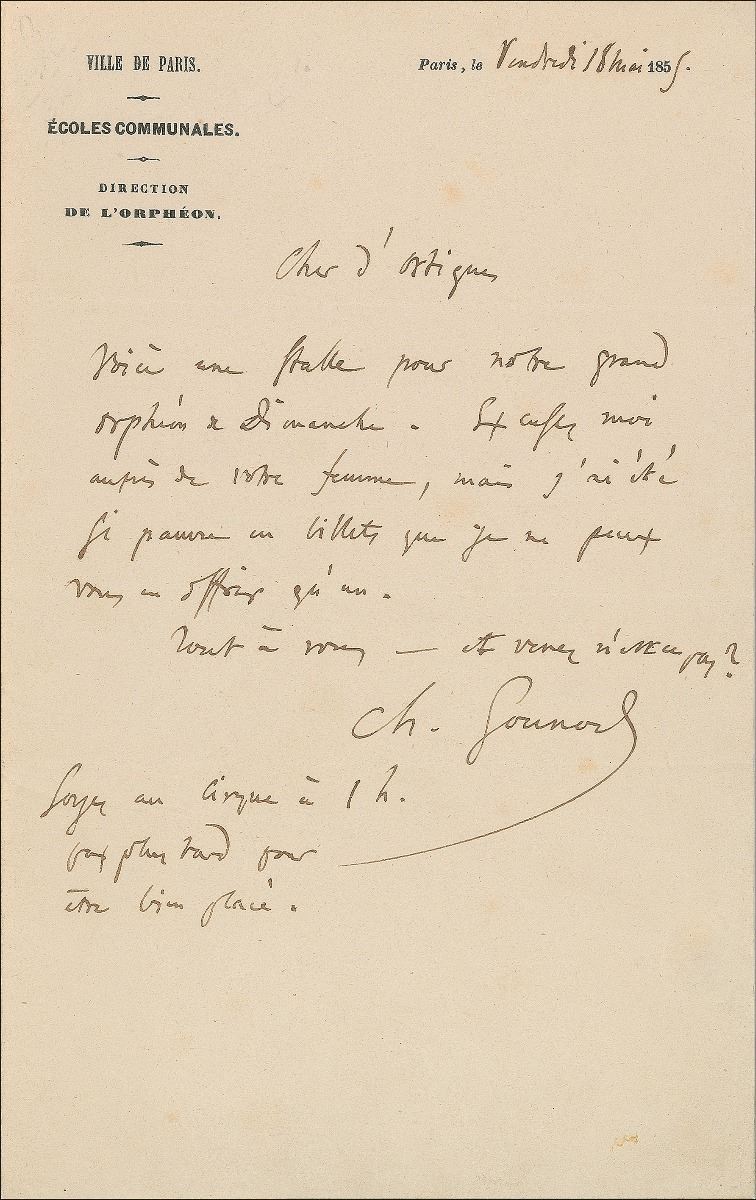 VILLE DE PARIS.
ÉCOLES COMMUNALES.
DIRECTION
DE L'ORPHÉON.
Paris, le Vendredi 18 mai 1855.
Cher d'Ortigues
Voici une stalle pour notre grand
orphéon de Dimanche. Excusez moi
auprès de votre femme, mais j'ai été
si pauvre en billets que je ne peux
vous en offrir qu'un.
Tout à vous — et venez n'est ce pas?
Ch. Gounod
Soyez au Cirque à 1 h.
pas plus tard pour
être bien placé.